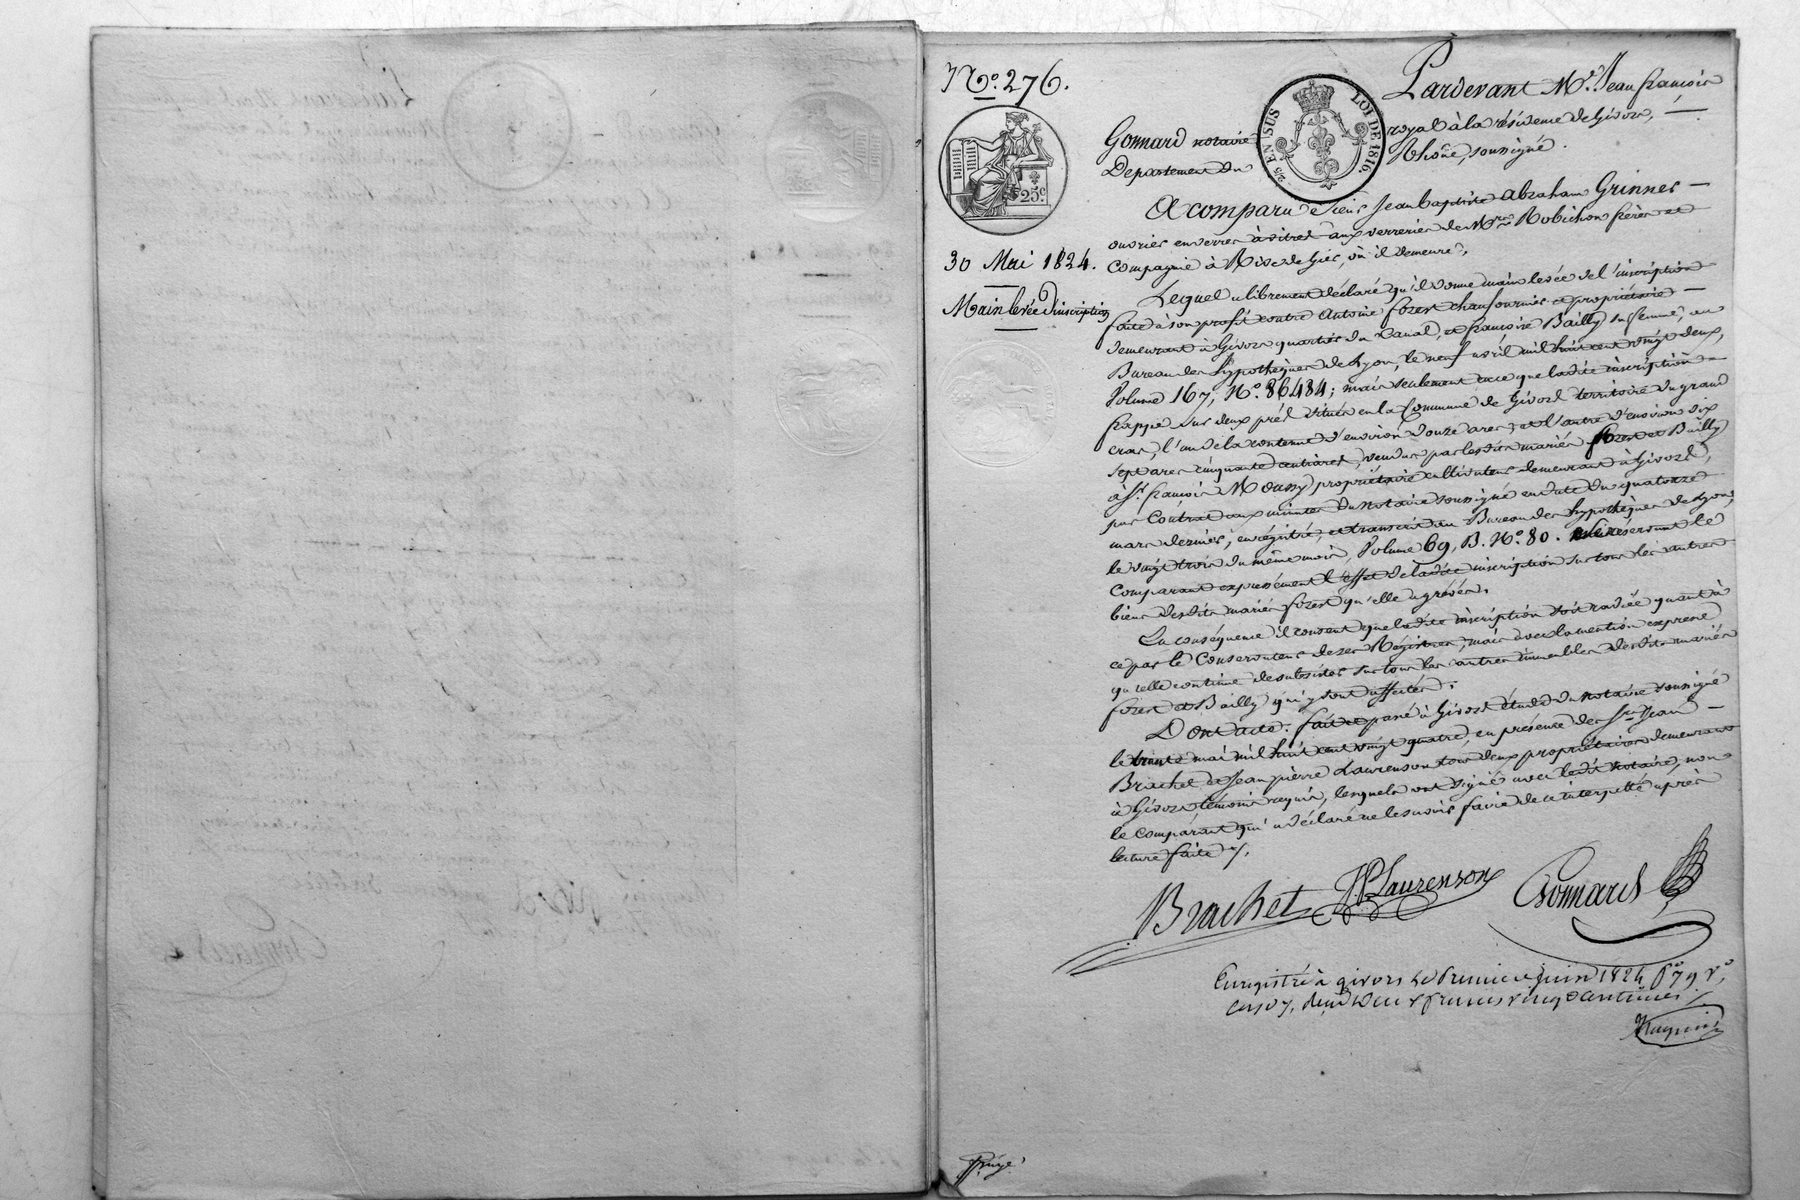 N.o 276.
25.c
2/5 EN SUS LOI DE 1816.
30 Mai 1824.
Main levée d'inscription
Pardevant M.e Jean françois
Gonnard notaire royal à la résidence de Givors,
Département du Rhône, soussigné.
A comparu Jean Baptiste Abraham Grinner
ouvrier en verres à vitres aux verreries de M.rs Robichon frères et
Compagnie à Rive de Gier, où il demeure,
Lequel a librement déclaré qu'il donne main levée de l'inscription
faite à son profit contre Antoine forest chaufournier et propriétaire
demeurant à Givors quartier du Canal, et françoise Bailly sa femme, au
Bureau des hypothèques de Lyon, le neuf avril mil huit cent vingt deux,
Volume 167, N.o 86484; mais seulement en ce que ladite inscription
frappe sur deux prés situés en la Commune de Givors territoire du grand
cras, l'un de la contenue d'environ douze ares, et l'autre d'environ dix
sept ares cinquante centiares, vendus par lesdits mariés forest et Bailly
à S.r françois Moussy propriétaire cultivateur demeurant à Givors,
par Contrat aux minutes du notaire soussigné en date du quatorze
mars dernier, enregistré, et transcrit au Bureau des hypothèques de Lyon,
le vingt trois du même mois, Volume 69, B. N.o 80. se réservant le
Comparant expressément l'effet de ladite inscription sur tous les autres
biens desdits mariés forest qu'elle a grévés.
En conséquence il consent que ladite inscription soit radiée quant à
ce par le Conservateur de ses Régistres, mais avec la mention expresse
qu'elle continue de subsister sur tous les autres immeubles desdits mariés
forest et Bailly qui y sont affectés.
Dont acte. fait et passé à Givors étude du notaire soussigné
le trente mai mil huit cent vingt quatre, en présence de S.rs Jean
Brachet & Jean pierre Laurenson tous deux propriétaires demeurant
à Givors témoins requis, lesquels ont signé avec ledit notaire, non
le comparant qui a déclaré ne le savoir faire de ce interpellé après
lecture faite.
Brachet JPLaurenson Gonnard
Enregistré à givors le premier juin 1824 f.o 79 v.o
deux francs vingt centimes